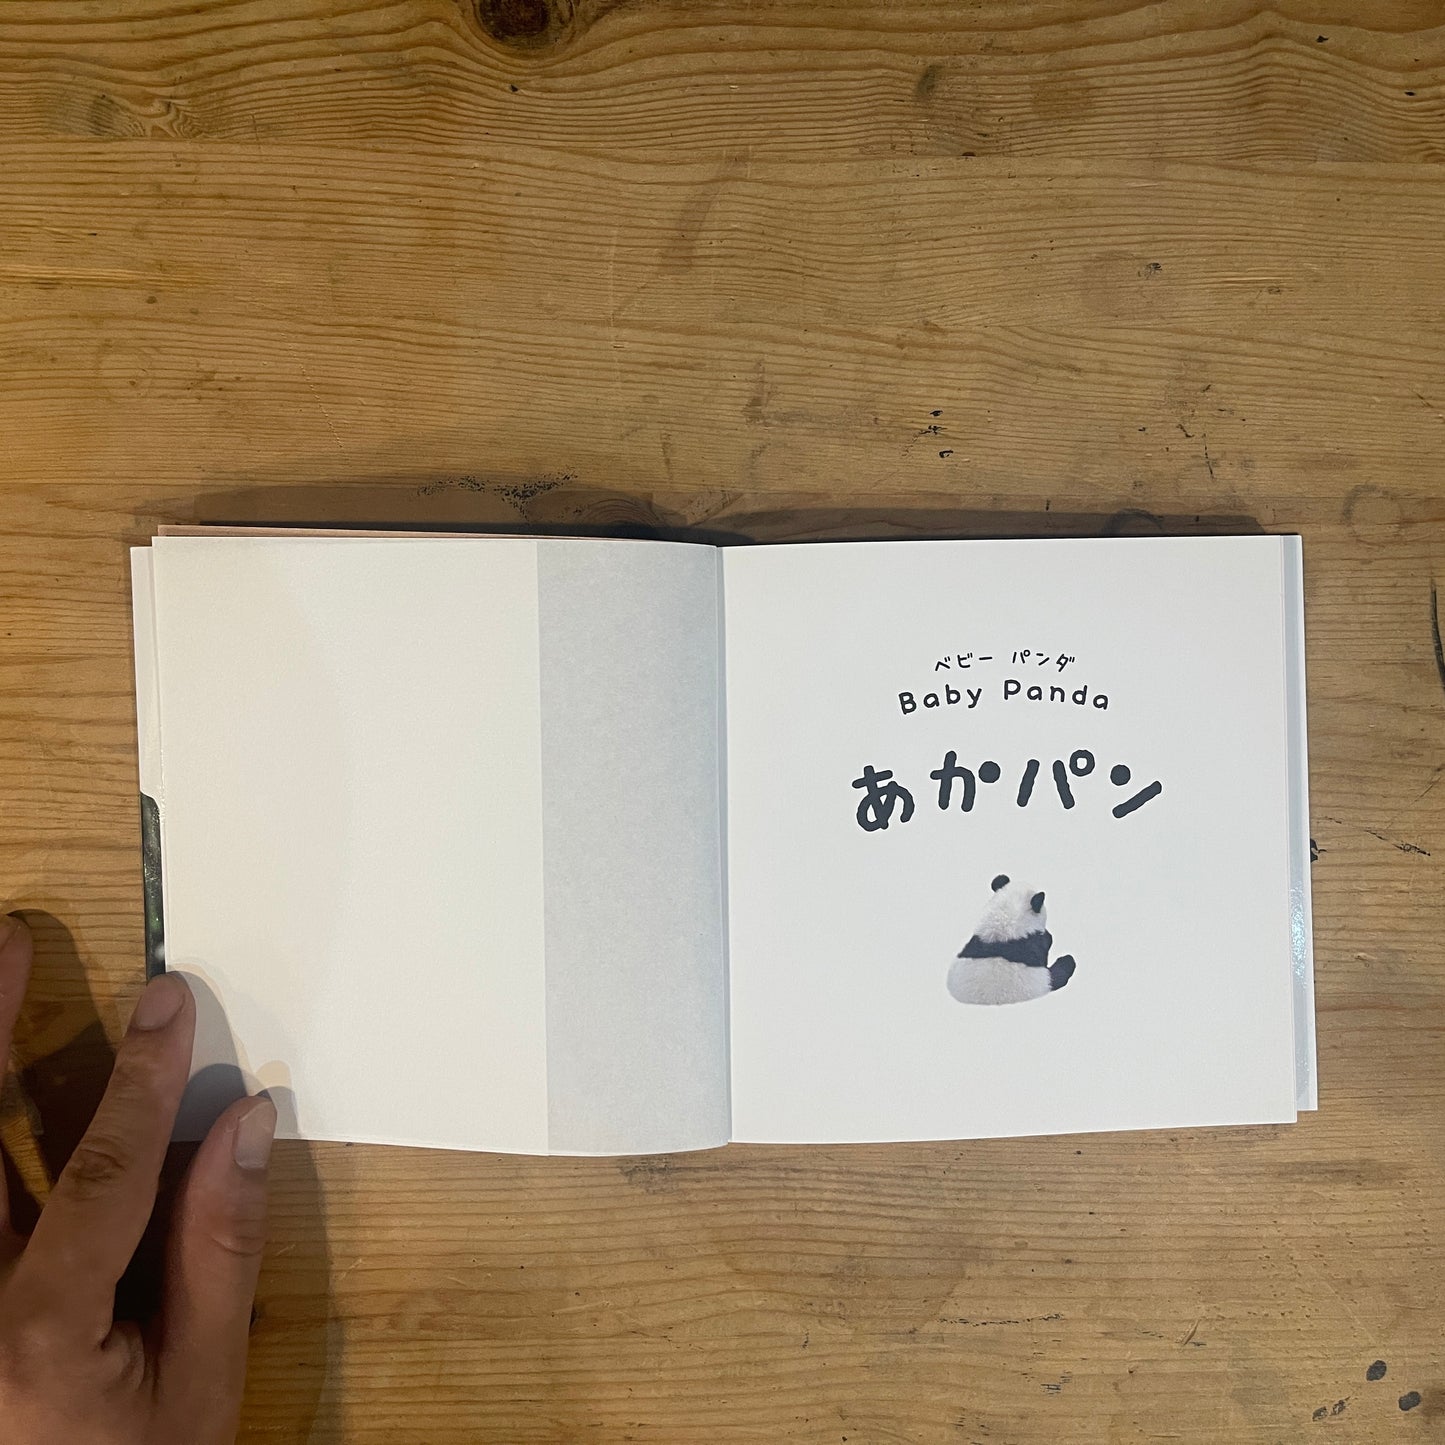 ベビー パンダ
Baby Panda
あかパン